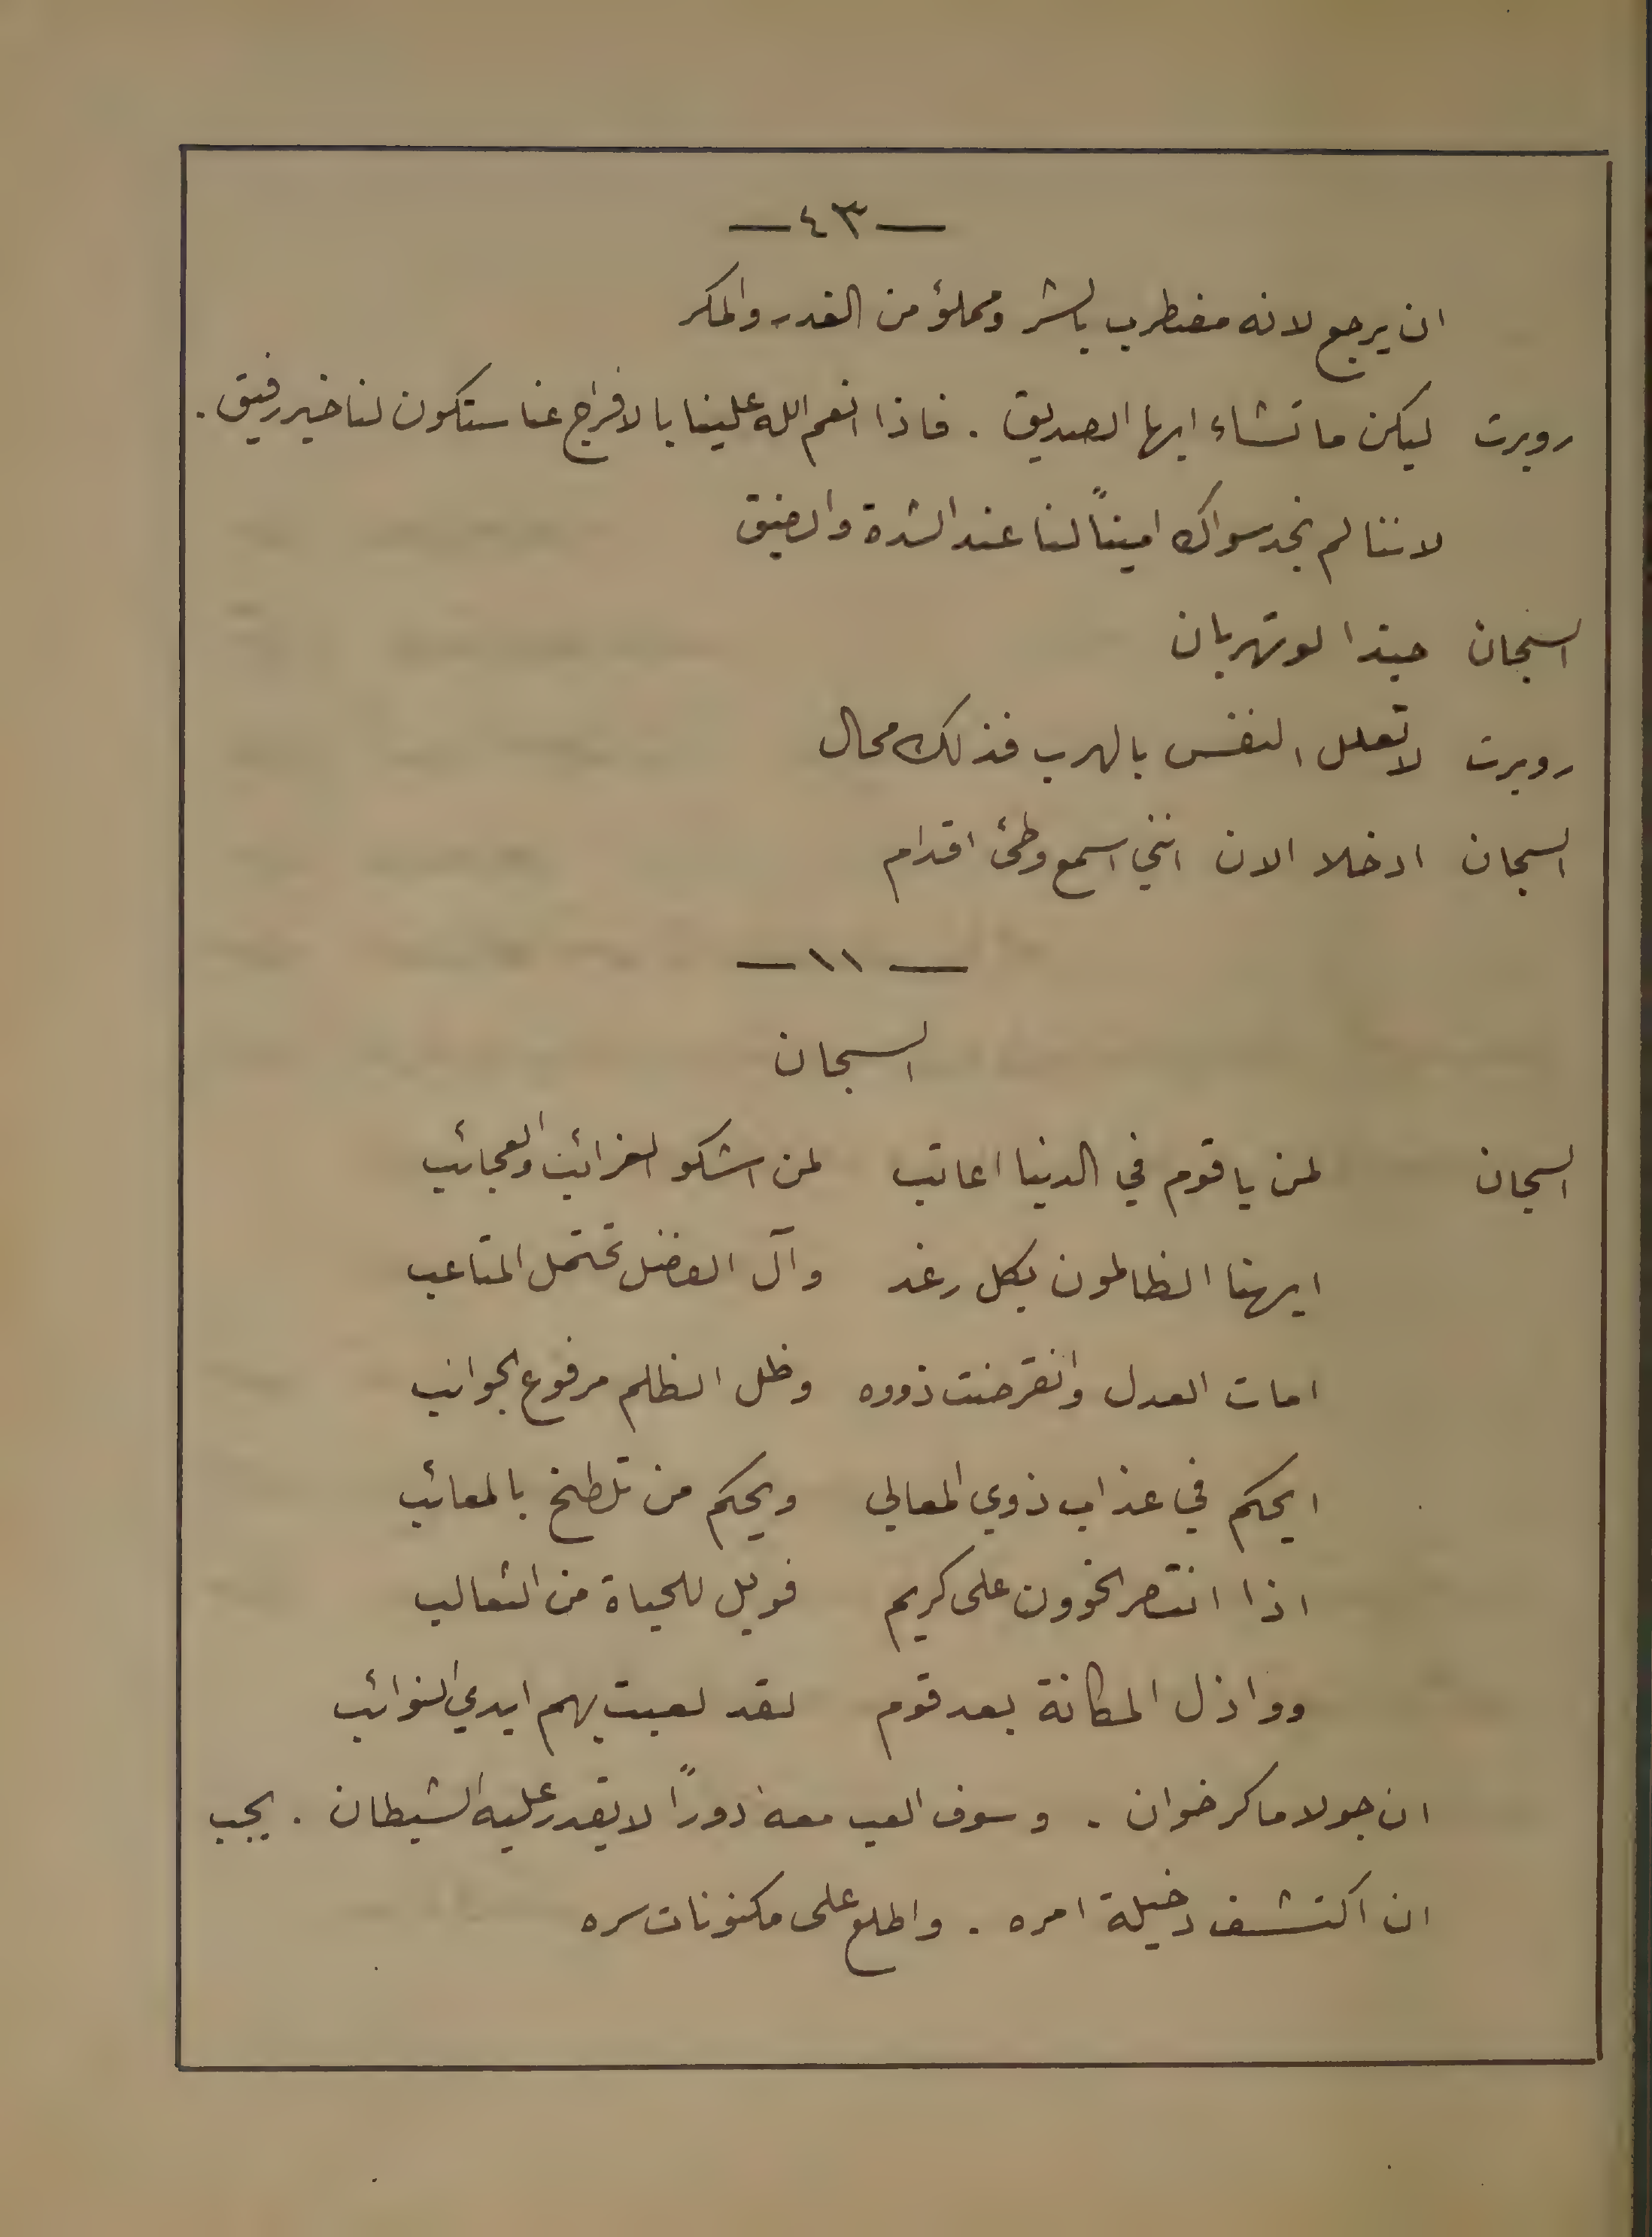 —٤٣—
ان يرجع لانه مضطرب بالشر ومملؤ من الغدر والمكر
روبرت ليكن ما تشاء ايها الصديق . فاذا انعم الله علينا بالافراج عنا ستكون لنا خير رفيق .
لاننا لم نجد سواك اميناً لنا عند الشدة والضيق
السجان حبذا لو تهربان
روبرت لا تعلل النفس بالهرب فذلك محال
السجان ادخلا الان انني اسمع وطئ اقدام
—١١—
السجان
السجان لمن يا قوم في الدنيا اعاتب لمن اشكو الغرائب والعجائب
ايهنا الظالمون بكل رغد وآل الفضل تحتمل المتاعب
امات العدل وانقرضت ذووه وظل الظلم مرفوع الجوانب
ايحكم في عذاب ذوي المعالي ويحكم من تلطخ بالمعائب
اذا انتصر الخوون على كريم فويل للحياة من الثعالب
وواذل المكانة بعد قوم لقد لعبت بهم ايدي النوائب
ان جولا ماكر خوان . وسوف العب معه دوراً لا يقدر عليه الشيطان . يجب
ان اكتشف دخيلة امره . واطلع على مكنونات سره